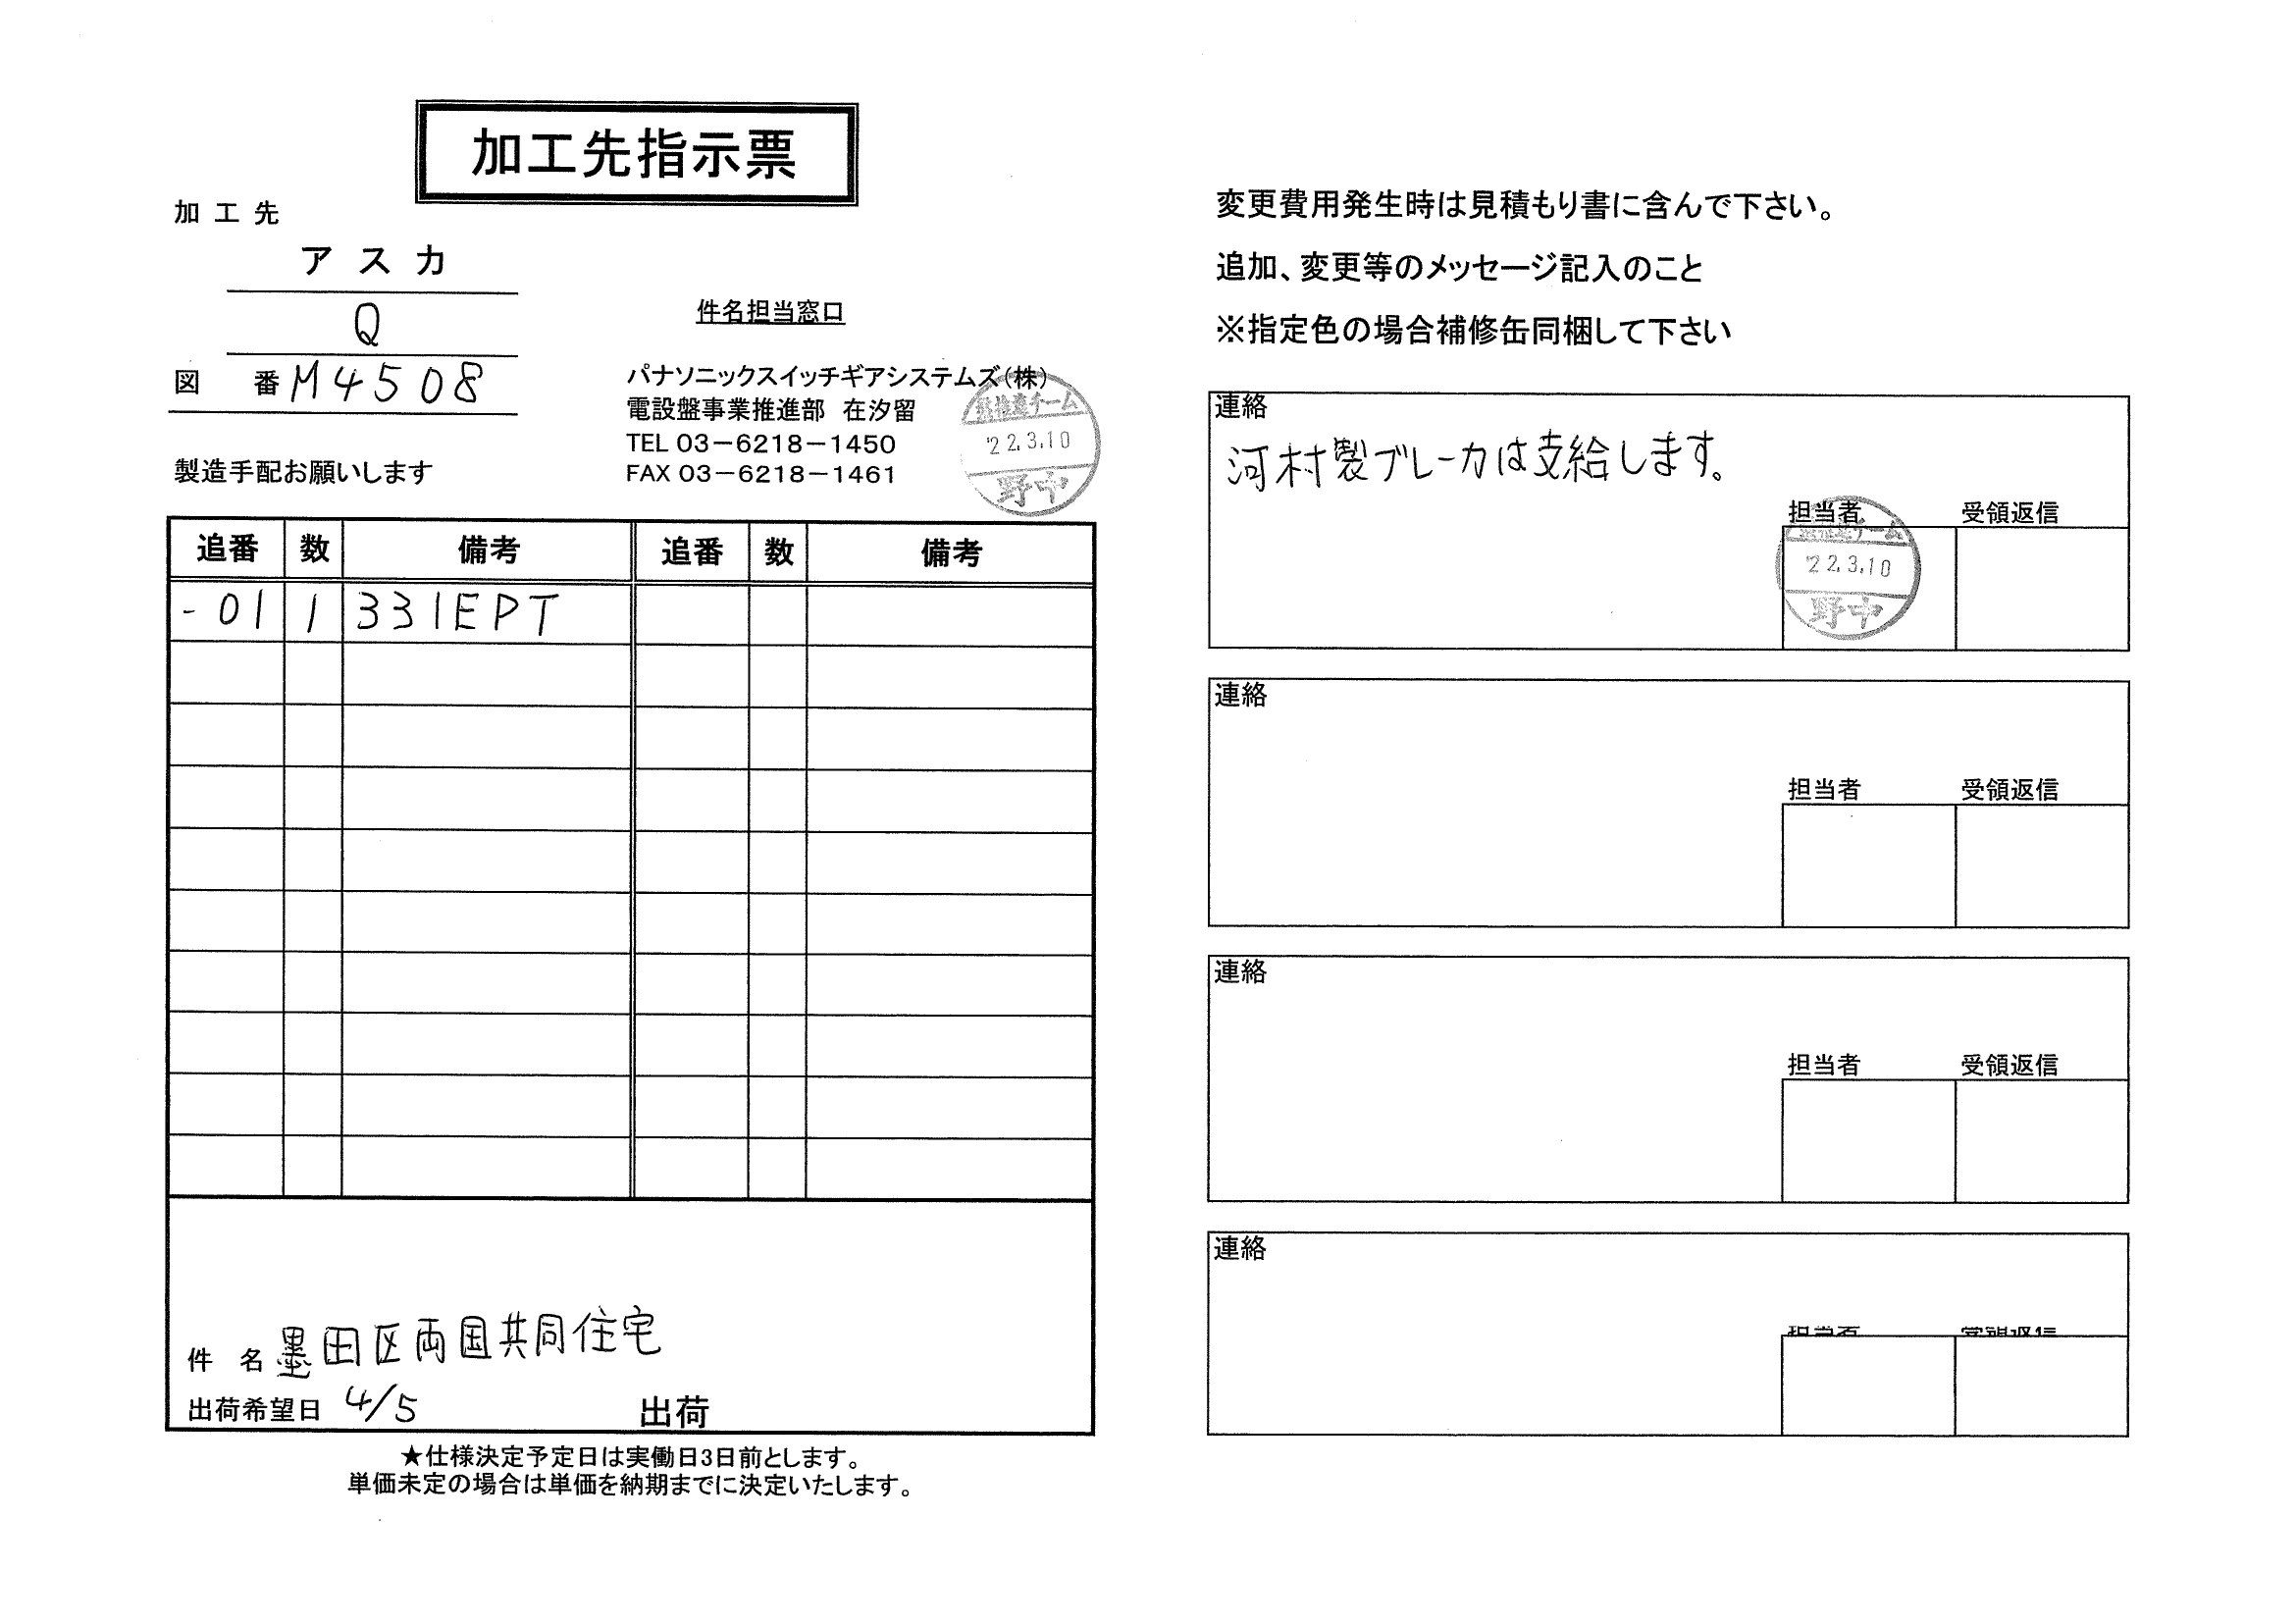 加工先指示票
加工先
アスカ
Q
図 番 M4508
製造手配お願いします
件名担当窓口
パナソニックスイッチギアシステムズ(株)
電設盤事業推進部 在汐留
TEL 03-6218-1450
FAX 03-6218-1461
'22.3.10
野中
追番 数 備考 追番 数 備考
-01 1 331EPT
件 名 墨田区両国共同住宅
出荷希望日 4/5 出荷
★仕様決定予定日は実働日3日前とします。
単価未定の場合は単価を納期までに決定いたします。
変更費用発生時は見積もり書に含んで下さい。
追加、変更等のメッセージ記入のこと
※指定色の場合補修缶同梱して下さい
連絡
河村製ブレーカは支給します。
担当者 受領返信
'22.3.10
野中
連絡
担当者 受領返信
連絡
担当者 受領返信
連絡
担当者 受領返信